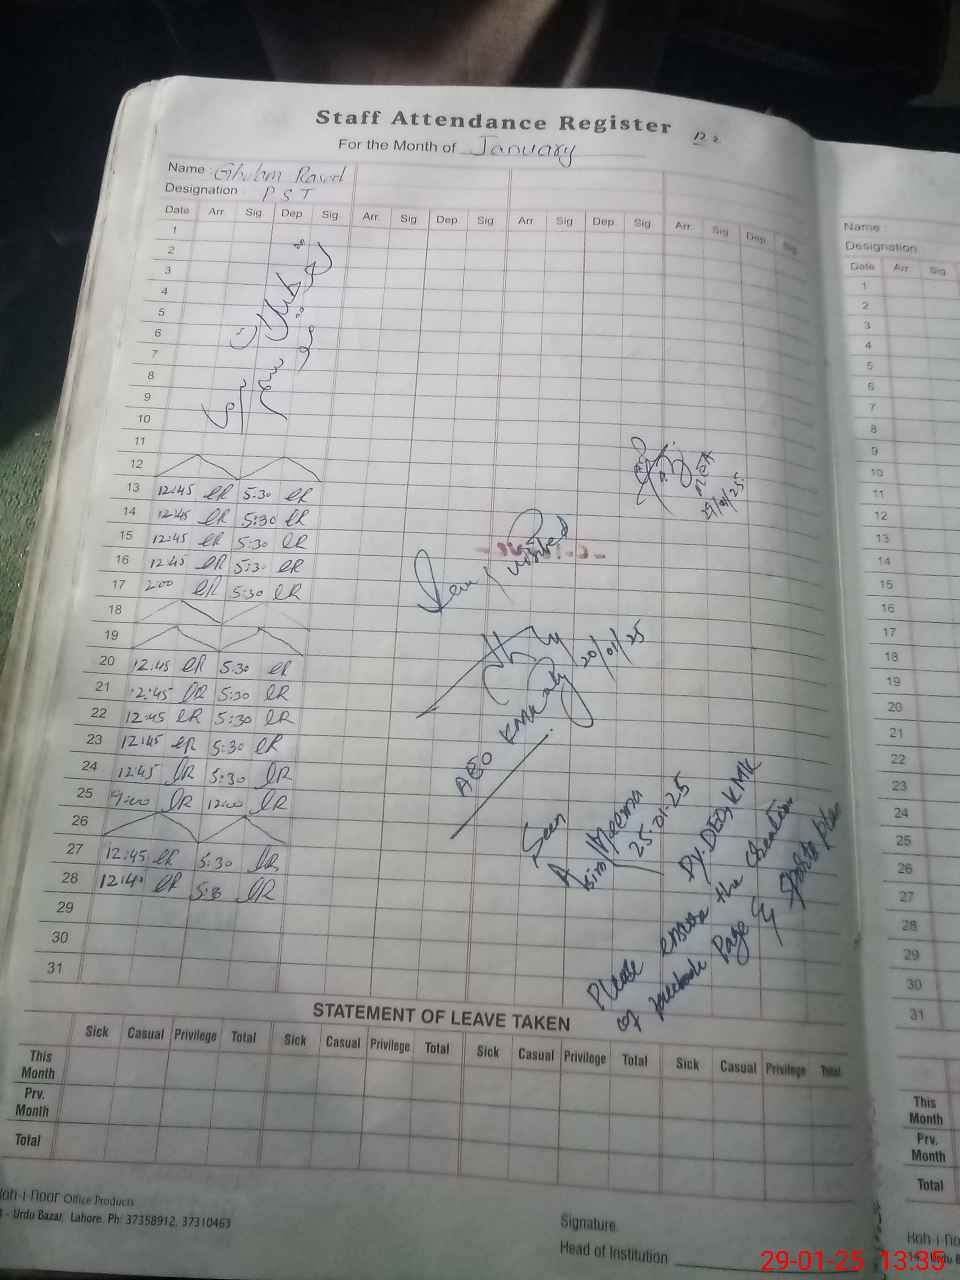 Staff Attendance Register
For the Month of January
Name : Ghulam Rasool
Designation : P S T
Date Arr. Sig. Dep. Sig. Arr. Sig. Dep. Sig. Arr. Sig. Dep. Sig. Arr. Sig. Dep. Sig.
1
2
3
4
5
6
7
8
9
10
11
12
13 12:45 GR 5:30 GR
14 12:45 GR 5:30 GR
15 12:45 GR 5:30 GR
16 12:45 GR 5:30 GR
17 2:00 GR 5:30 GR
18
19
20 12:45 GR 5:30 GR
21 12:45 GR 5:30 GR
22 12:45 GR 5:30 GR
23 12:45 GR 5:30 GR
24 12:45 GR 5:30 GR
25 9:00 GR 12:00 GR
26
27 12:45 GR 5:30 GR
28 12:40 GR GR
29
30
31
موسم سرما کی تعطیلات
29/01/25
Seen / visited
20/01/25
AEO
Seen
25-01-25
Dy. DEO, KMK
Please ensure the creation
of facebook Page
STATEMENT OF LEAVE TAKEN
Sick Casual Privilege Total Sick Casual Privilege Total Sick Casual Privilege Total Sick Casual Privilege Total
This Month
Prv. Month
Total
Koh-i-noor Office Products
- Urdu Bazar, Lahore. Ph: 37358912, 37310463
Signature
Head of Institution
Name :
Designation
Date Arr. Sig.
1
2
3
4
5
6
7
8
9
10
11
12
13
14
15
16
17
18
19
20
21
22
23
24
25
26
27
28
29
30
31
This Month
Prv. Month
Total
29-01-25 13:35